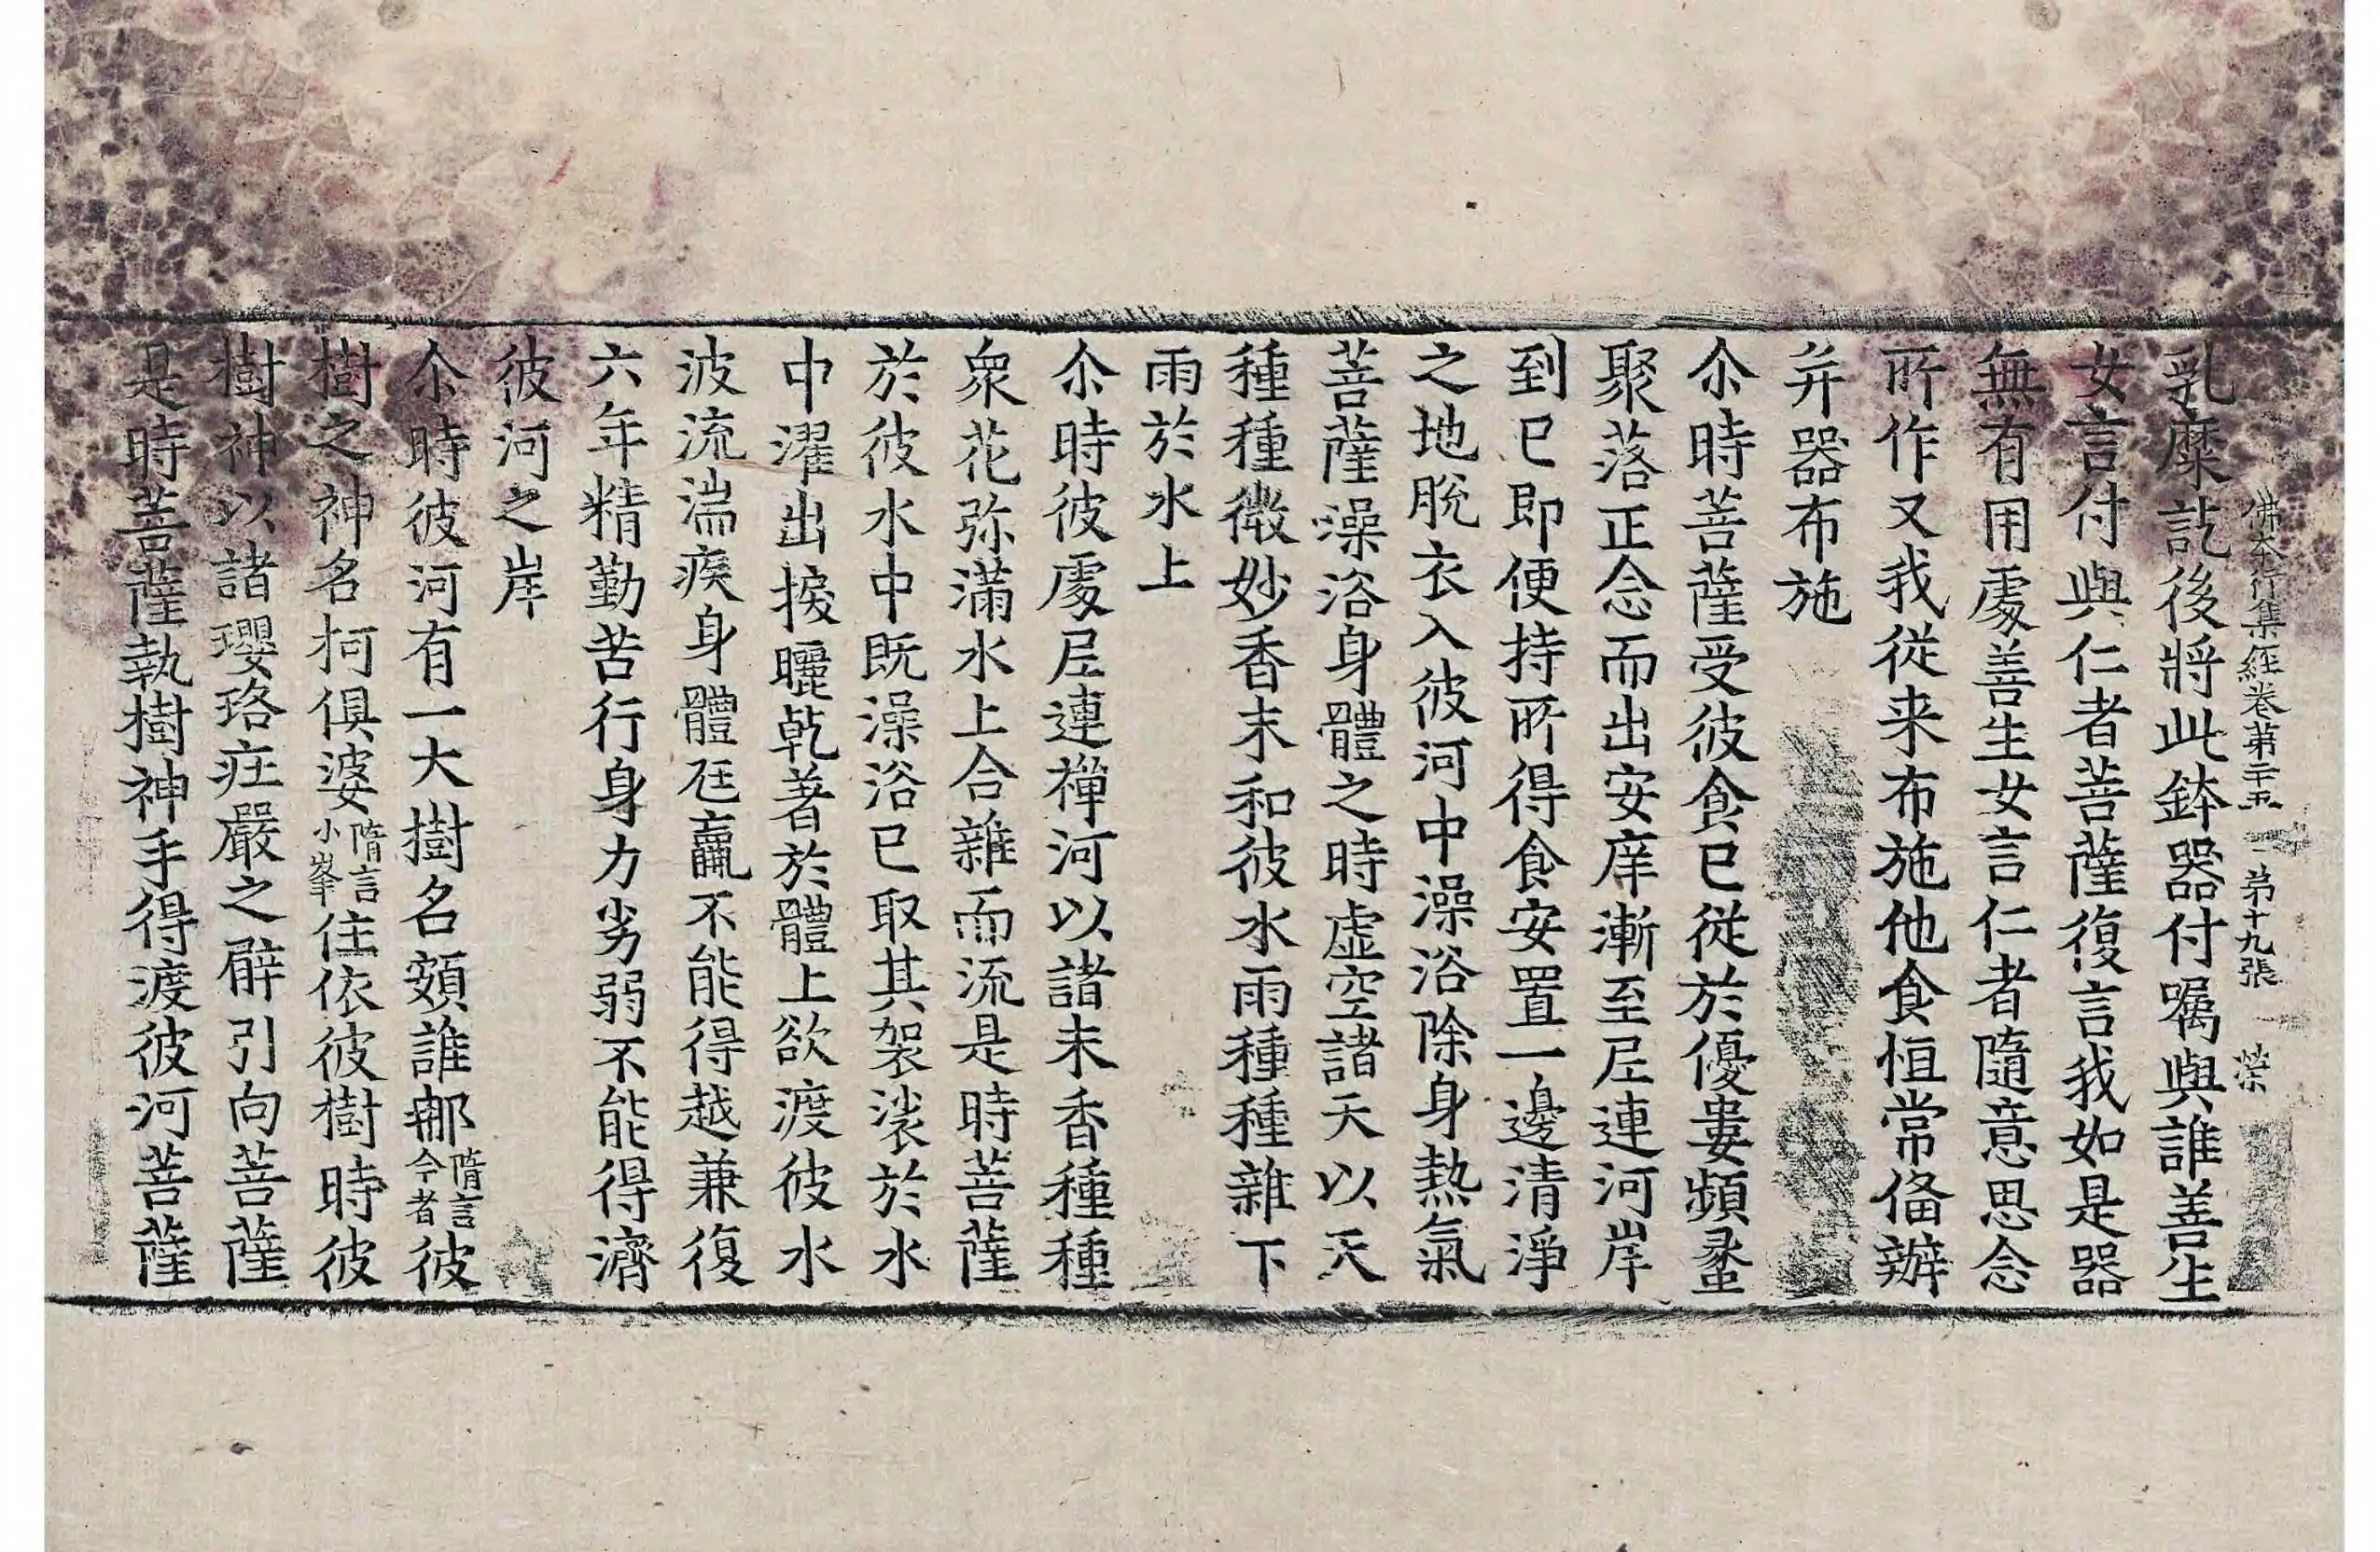 佛本行集經卷第二十五 第十九張 榮
乳糜訖後將此鉢器付囑與誰善生
女言付與仁者菩薩復言我如是器
無有用處善生女言仁者隨意思念
所作又我從来布施他食恒常俻辦
并器布施
尒時菩薩受彼食已從於優婁頻䗍
聚落正念而出安庠漸至尼連河岸
到已即便持所得食安置一邊清淨
之地脫衣入彼河中澡浴除身熱氣
菩薩澡浴身體之時虛空諸天以天
種種微妙香末和彼水雨種種雜下
雨於水上
尒時彼處尼連禪河以諸末香種種
衆花弥滿水上合雜而流是時菩薩
於彼水中既澡浴已取其袈裟於水
中濯出捩曬乾著於體上欲渡彼水
波流湍疾身體尫羸不能得越兼復
六年精勤苦行身力劣弱不能得濟
彼河之岸
尒時彼河有一大樹名頞誰那隋言今者彼
樹之神名柯俱婆隋言小峯住依彼樹時彼
樹神以諸瓔珞莊嚴之臂引向菩薩
是時菩薩執樹神手得渡彼河菩薩